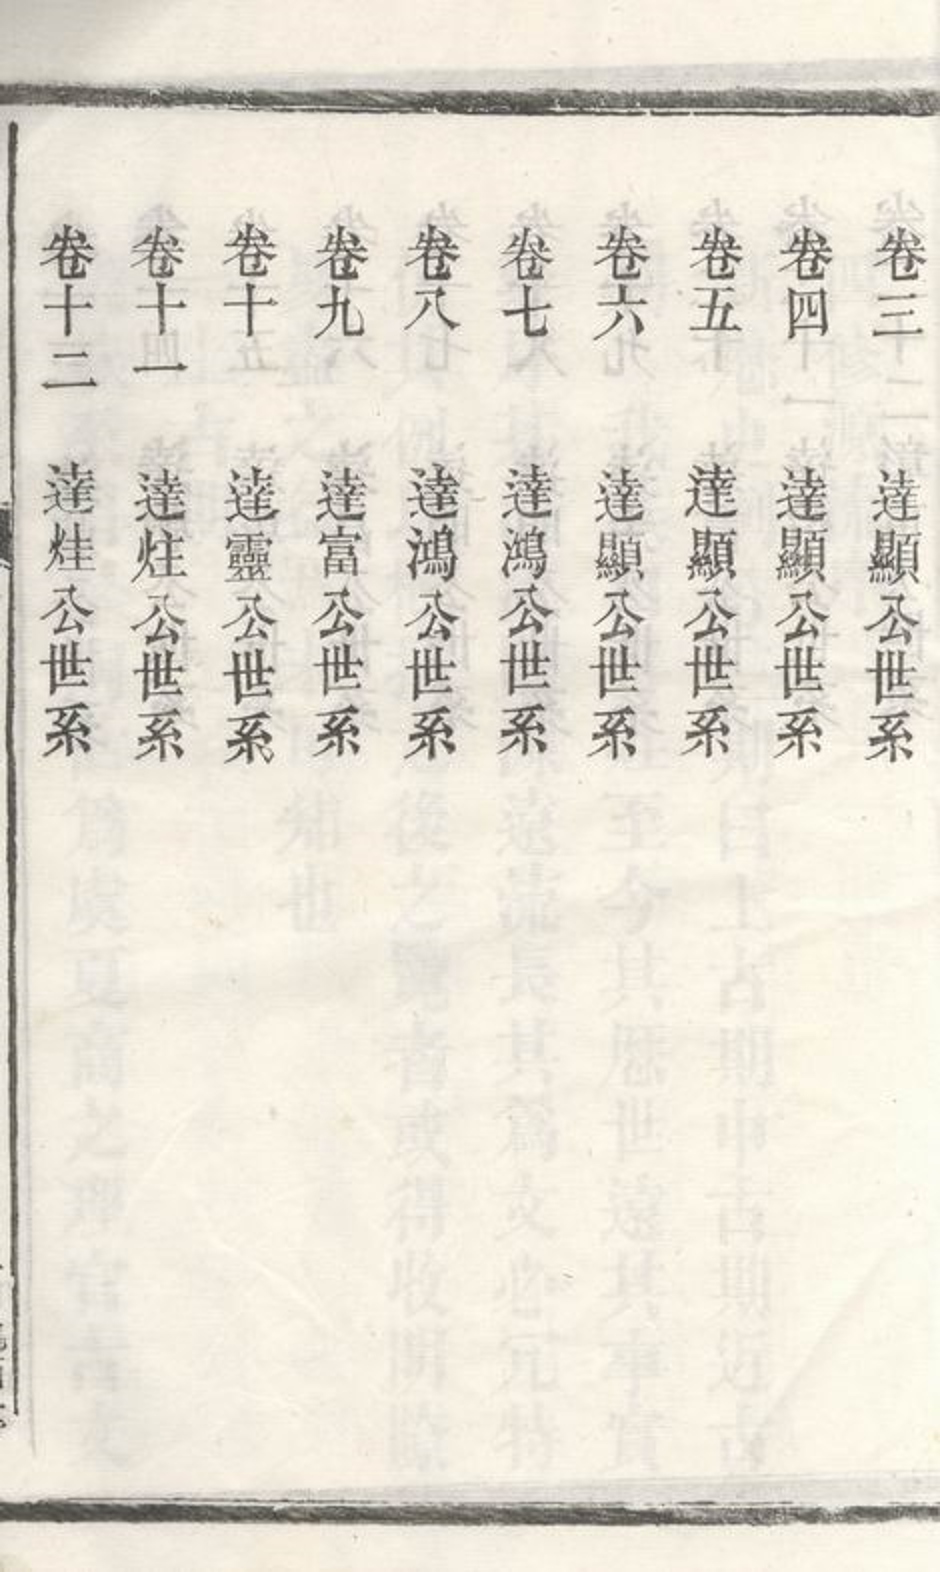 卷三　達顯公世系
卷四　達顯公世系
卷五　達顯公世系
卷六　達顯公世系
卷七　達鴻公世系
卷八　達鴻公世系
卷九　達富公世系
卷十　達靈公世系
卷十一　達炷公世系
卷十二　達烓公世系